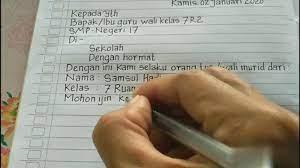 Kamis, 02 Januari 2020
Kepada yth
Bapak/Ibu guru wali kelas 7R2
SMP Negeri 17
Di-
Sekolah
Dengan hormat
Dengan ini kami selaku orang tua/wali murid dari
Nama : Samsul Hadi
Kelas : 7 Ruan
Mohon ijin Ke